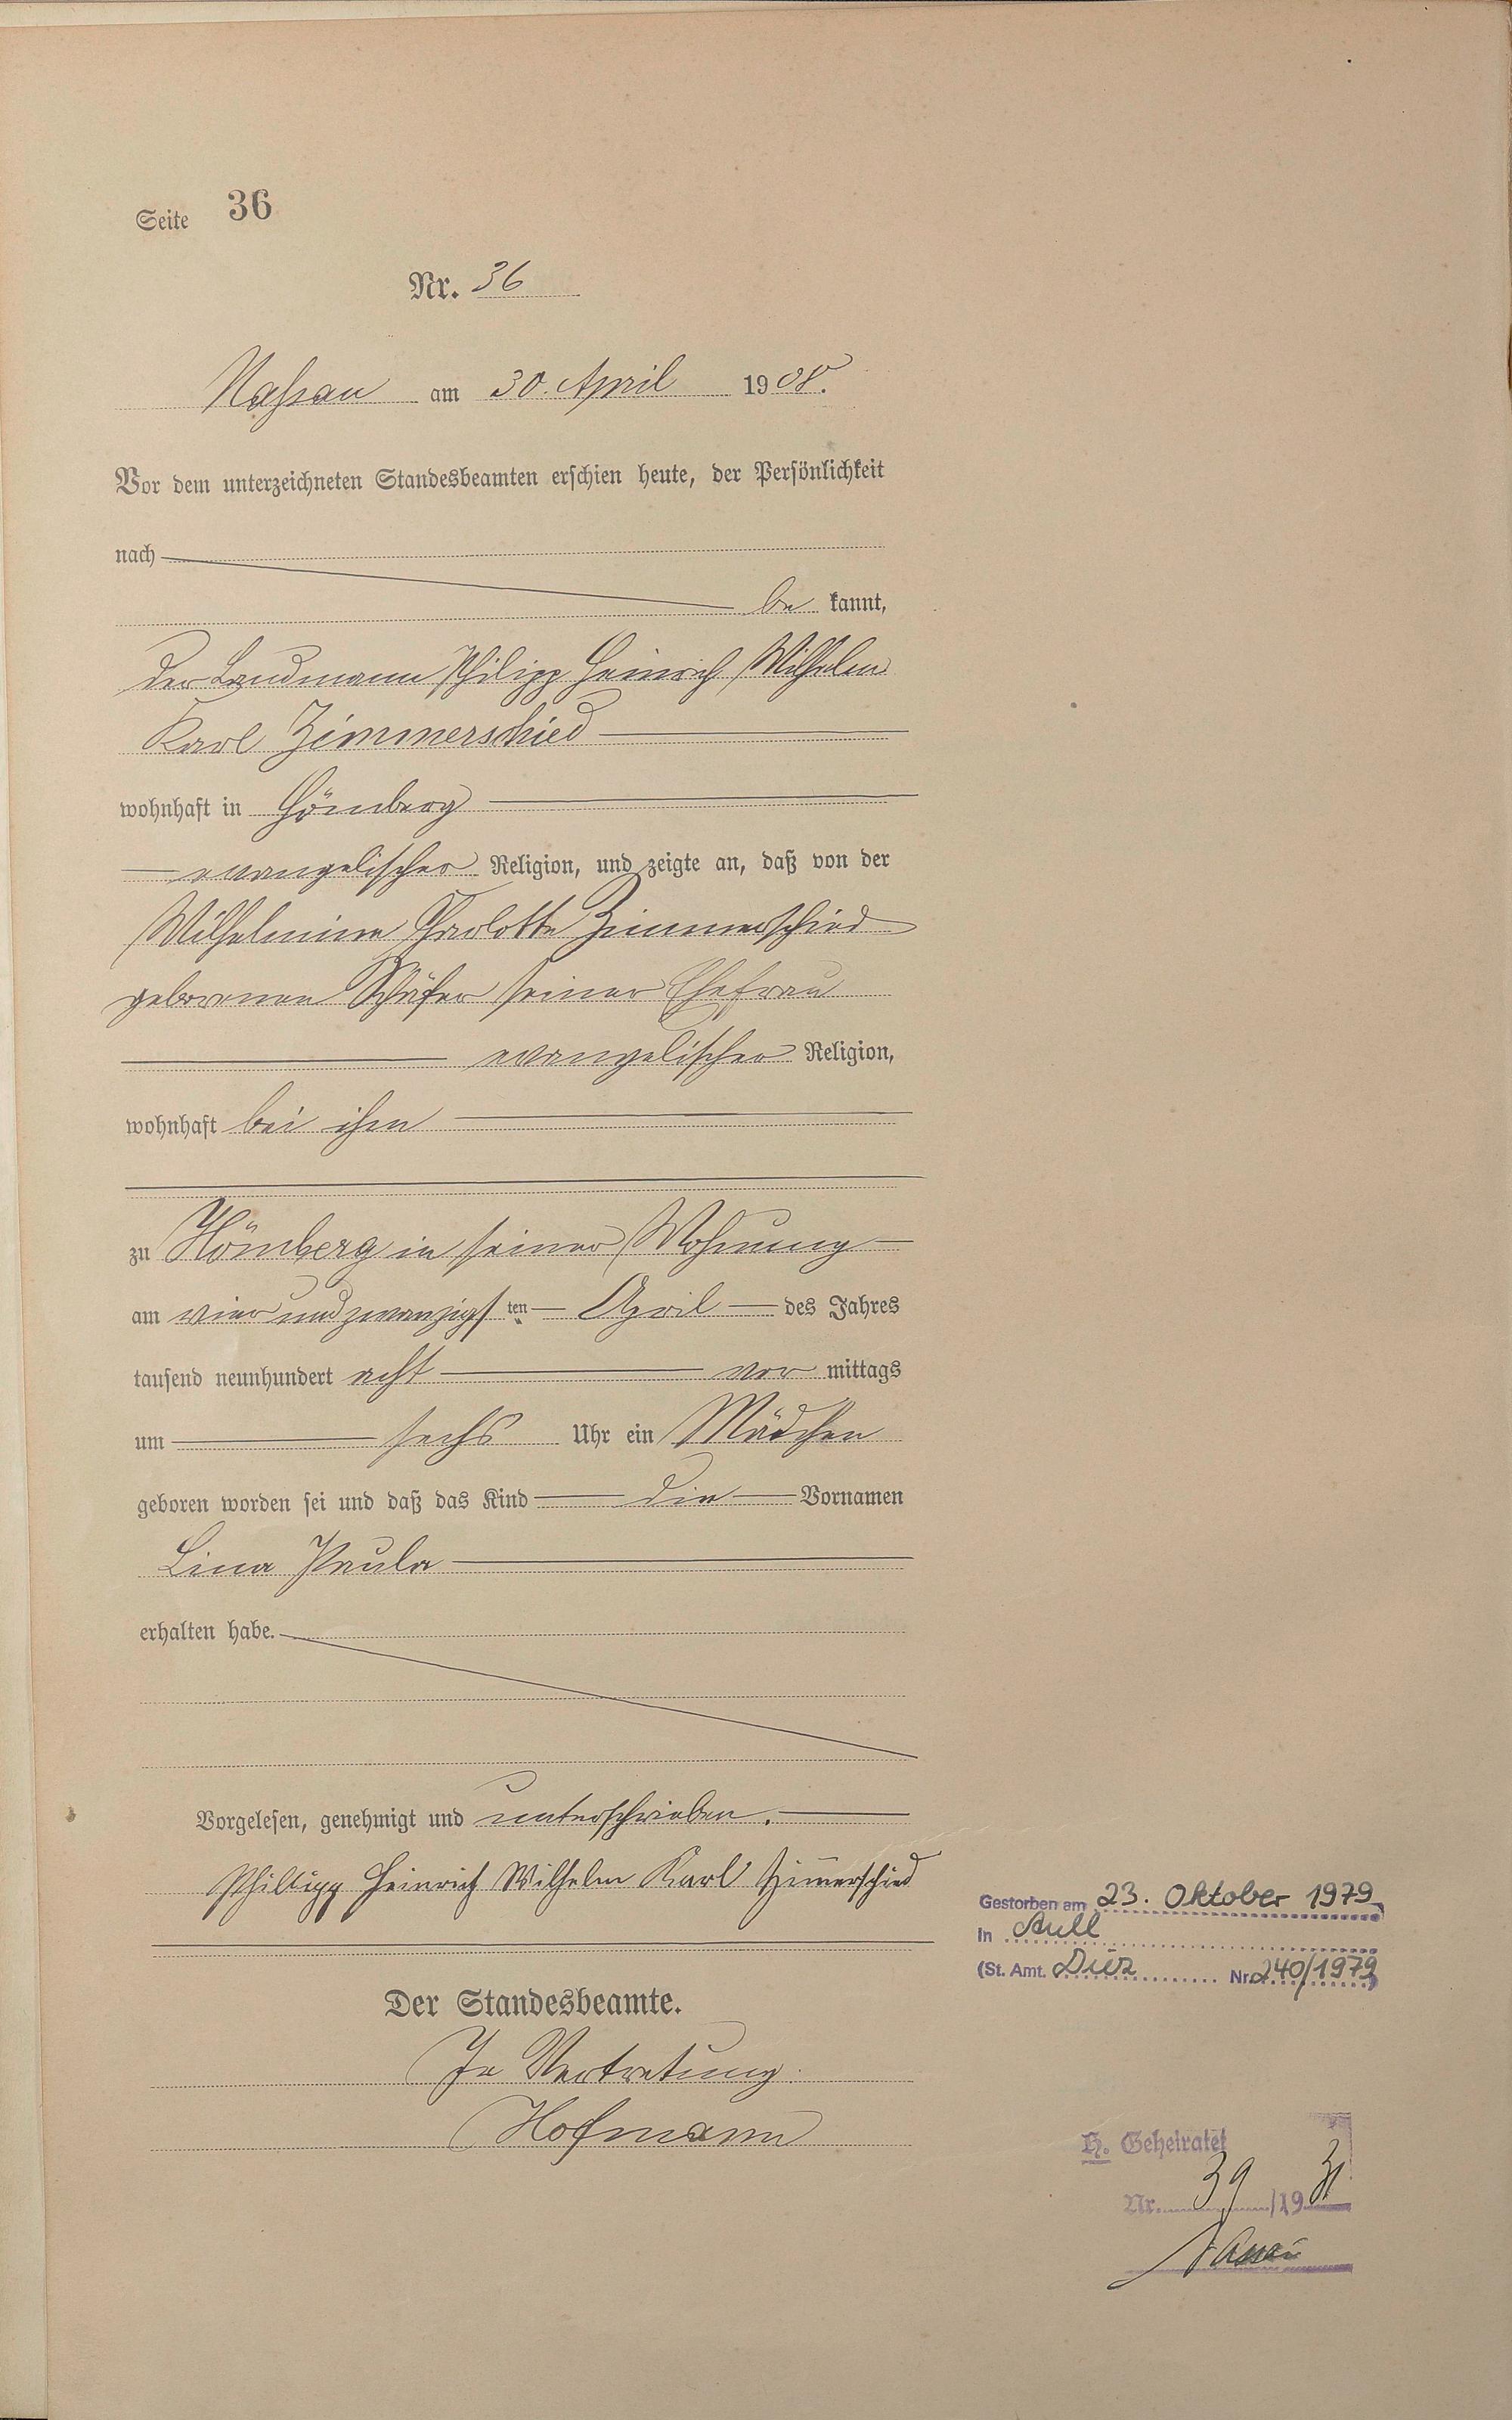 Seite 36
Nr. 36
Nassau am 30. April 1908.
Vor dem unterzeichneten Standesbeamten erschien heute, der Persönlichkeit
nach
be kannt,
der Landmann Philipp Heinrich Wilhelm
Karl Zimmerschied
wohnhaft in Hömberg
evangelischer Religion, und zeigte an, daß von der
Wilhelmine Charlotte Zimmerschied
geborenen Schäfer seiner Ehefrau
evangelischer Religion,
wohnhaft bei ihm
zu Hömberg in seiner Wohnung
am vier und zwanzigsten April des Jahres
tausend neunhundert acht vor mittags
um sechs Uhr ein Mädchen
geboren worden sei und daß das Kind die Vornamen
Lina Paula
erhalten habe.
Vorgelesen, genehmigt und unterschrieben.
Phillipp Heinrich Wilhelm Karl Zim̄erschied
Der Standesbeamte.
In Vertretung.
Hofmann
Gestorben am 23. Oktober 1979
In Aull
(St. Amt. Diez Nr. 240/1979)
H. Geheiratet
Nr. 39/1931
Nassau